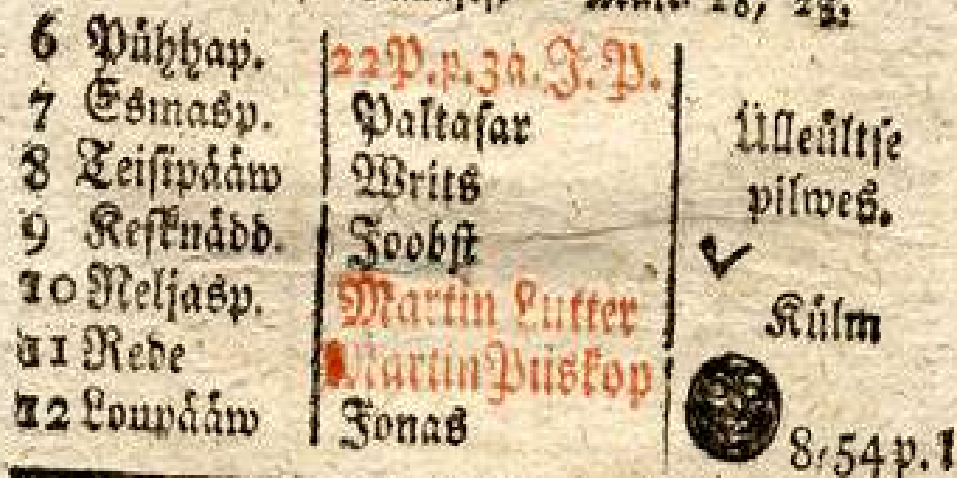 28, 29.
6 Pühhap. 22 P. p. 3 ä. J. P.
7 Esmasp. Paltasar Ülleültse
8 Teisipääw Writs pilwes.
9 Kesknädd. Joobst
10 Neljasp. Martin Lutter Külm
11 Rede Martin Piiskop
12 Loupääw Jonas 8, 54 p. l